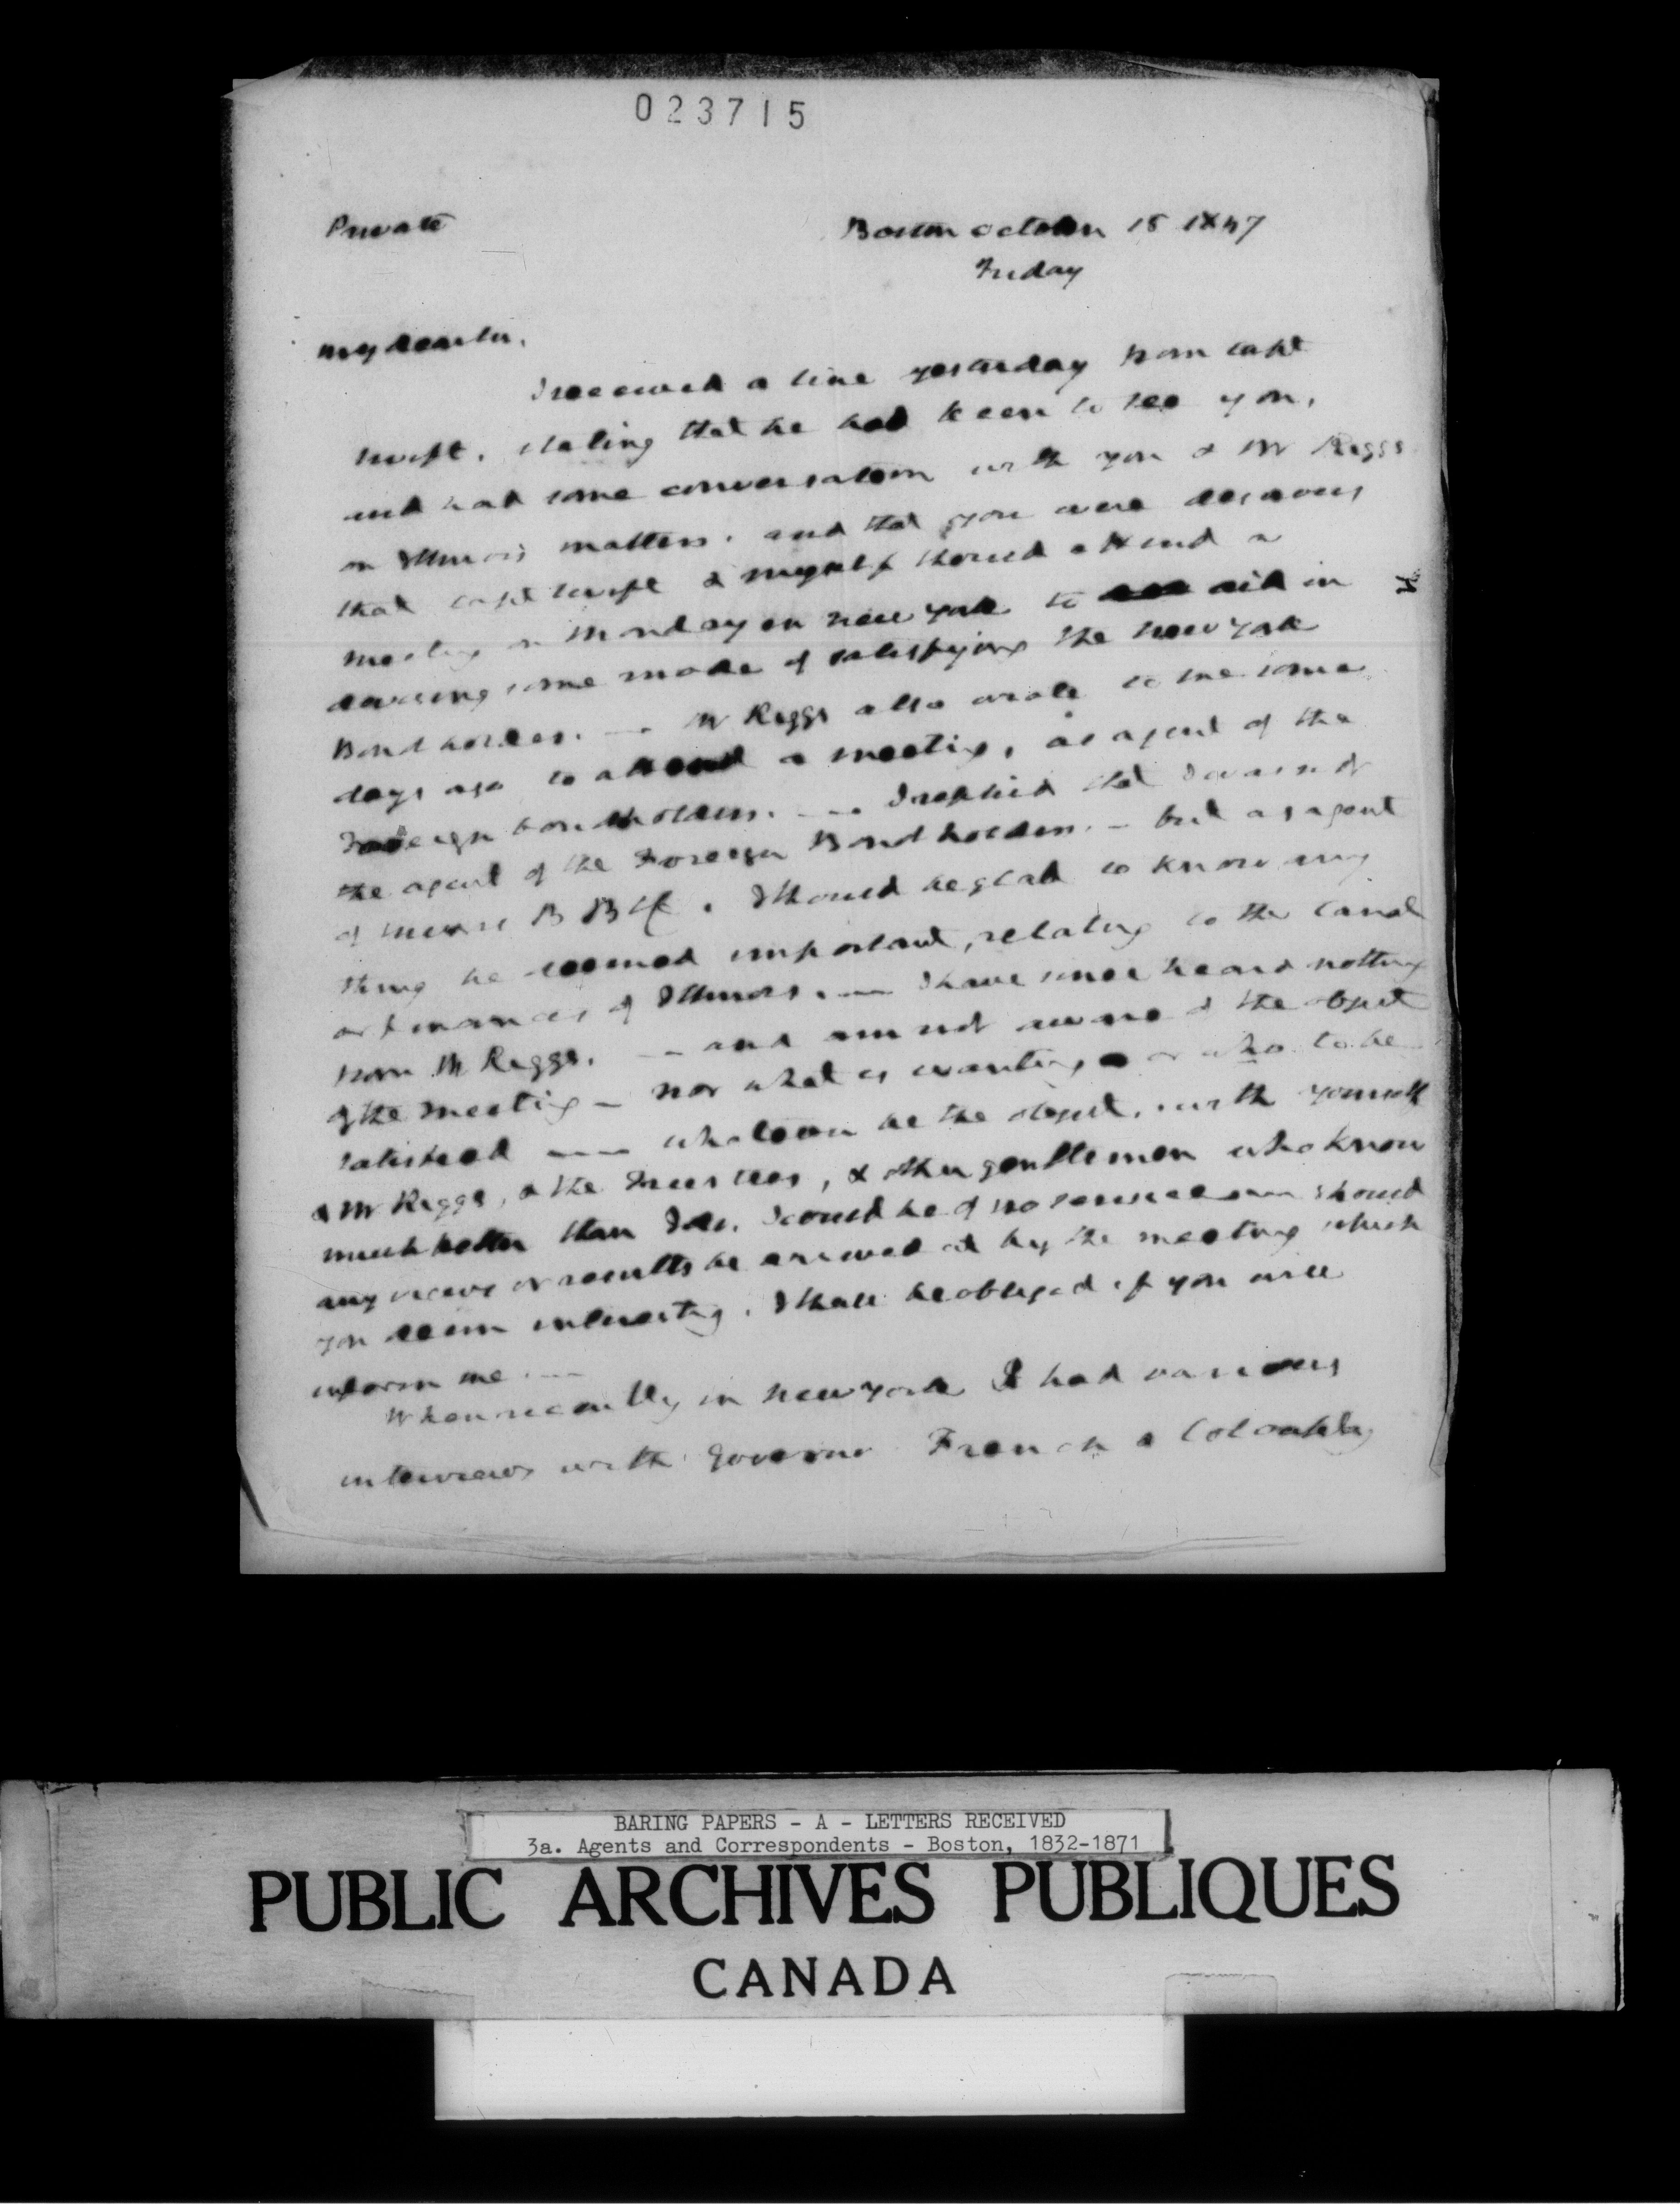 023715
Private
Boston October 15 1847
Friday
My dear Sir,
I received a line yesterday from Capt
Swift, stating that he had been to see you,
and had some conversation with you & Mr Riggs
on Illinois matters, and that you were desirous
that Capt Swift & myself should attend a
meeting on Monday in New York to aid in
devising some mode of satisfying the New York
Bond holders. — Mr Riggs also wrote to me some
days ago to attend a meeting, as agent of the
Foreign bondholders. — I replied that I was not
the agent of the Foreign Bond holders. — but as agent
of Messrs B B & Co. I should be glad to know any
thing he deemed important, relating to the Canal
or finances of Illinois. — I have since heard nothing
from Mr Riggs. — and am not aware of the object
of the meeting — nor what is wanting or who to be
satisfied — whatever be the object, with yourself
& Mr Riggs, & the Trustees, & other gentlemen who know
much better than I do, I could be of no service — should
any views or results be arrived at by the meeting which
you deem interesting, I shall be obliged if you will
inform me. —
When recently in New York I had various
interviews with Governor French & Col Oakley
BARING PAPERS - A - LETTERS RECEIVED
3a. Agents and Correspondents - Boston, 1832-1871
PUBLIC ARCHIVES PUBLIQUES
CANADA